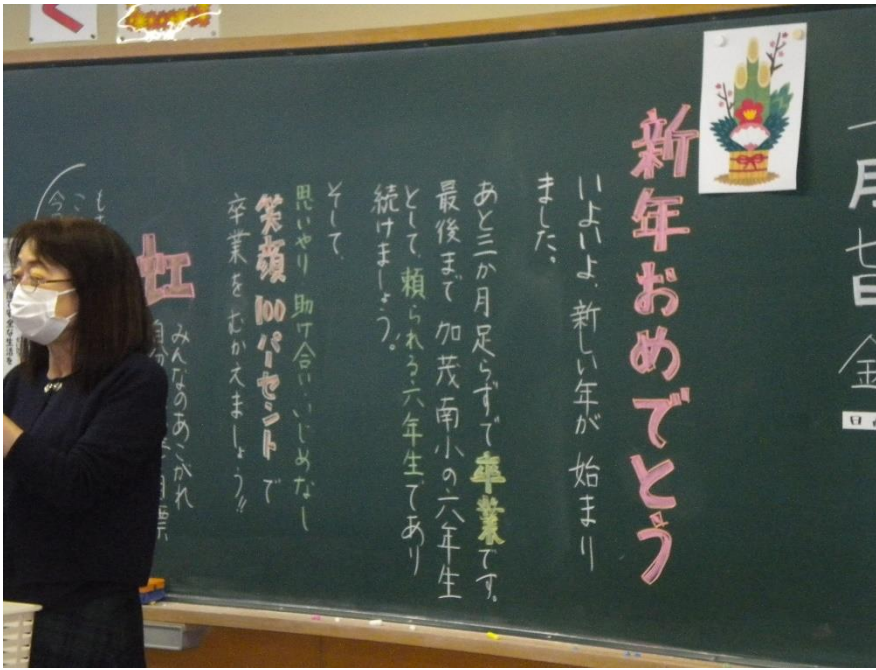 一月七日 金
新年おめでとう
いよいよ、新しい年が始まり
ました。
あと三か月足らずで卒業です。
最後まで加茂南小の六年生
として、頼られる六年生であり
続けましょう。
そして、
思いやり 助け合い いじめなし
笑顔100パーセントで
卒業をむかえましょう!!
虹
みんなのあこがれ
自分
目標